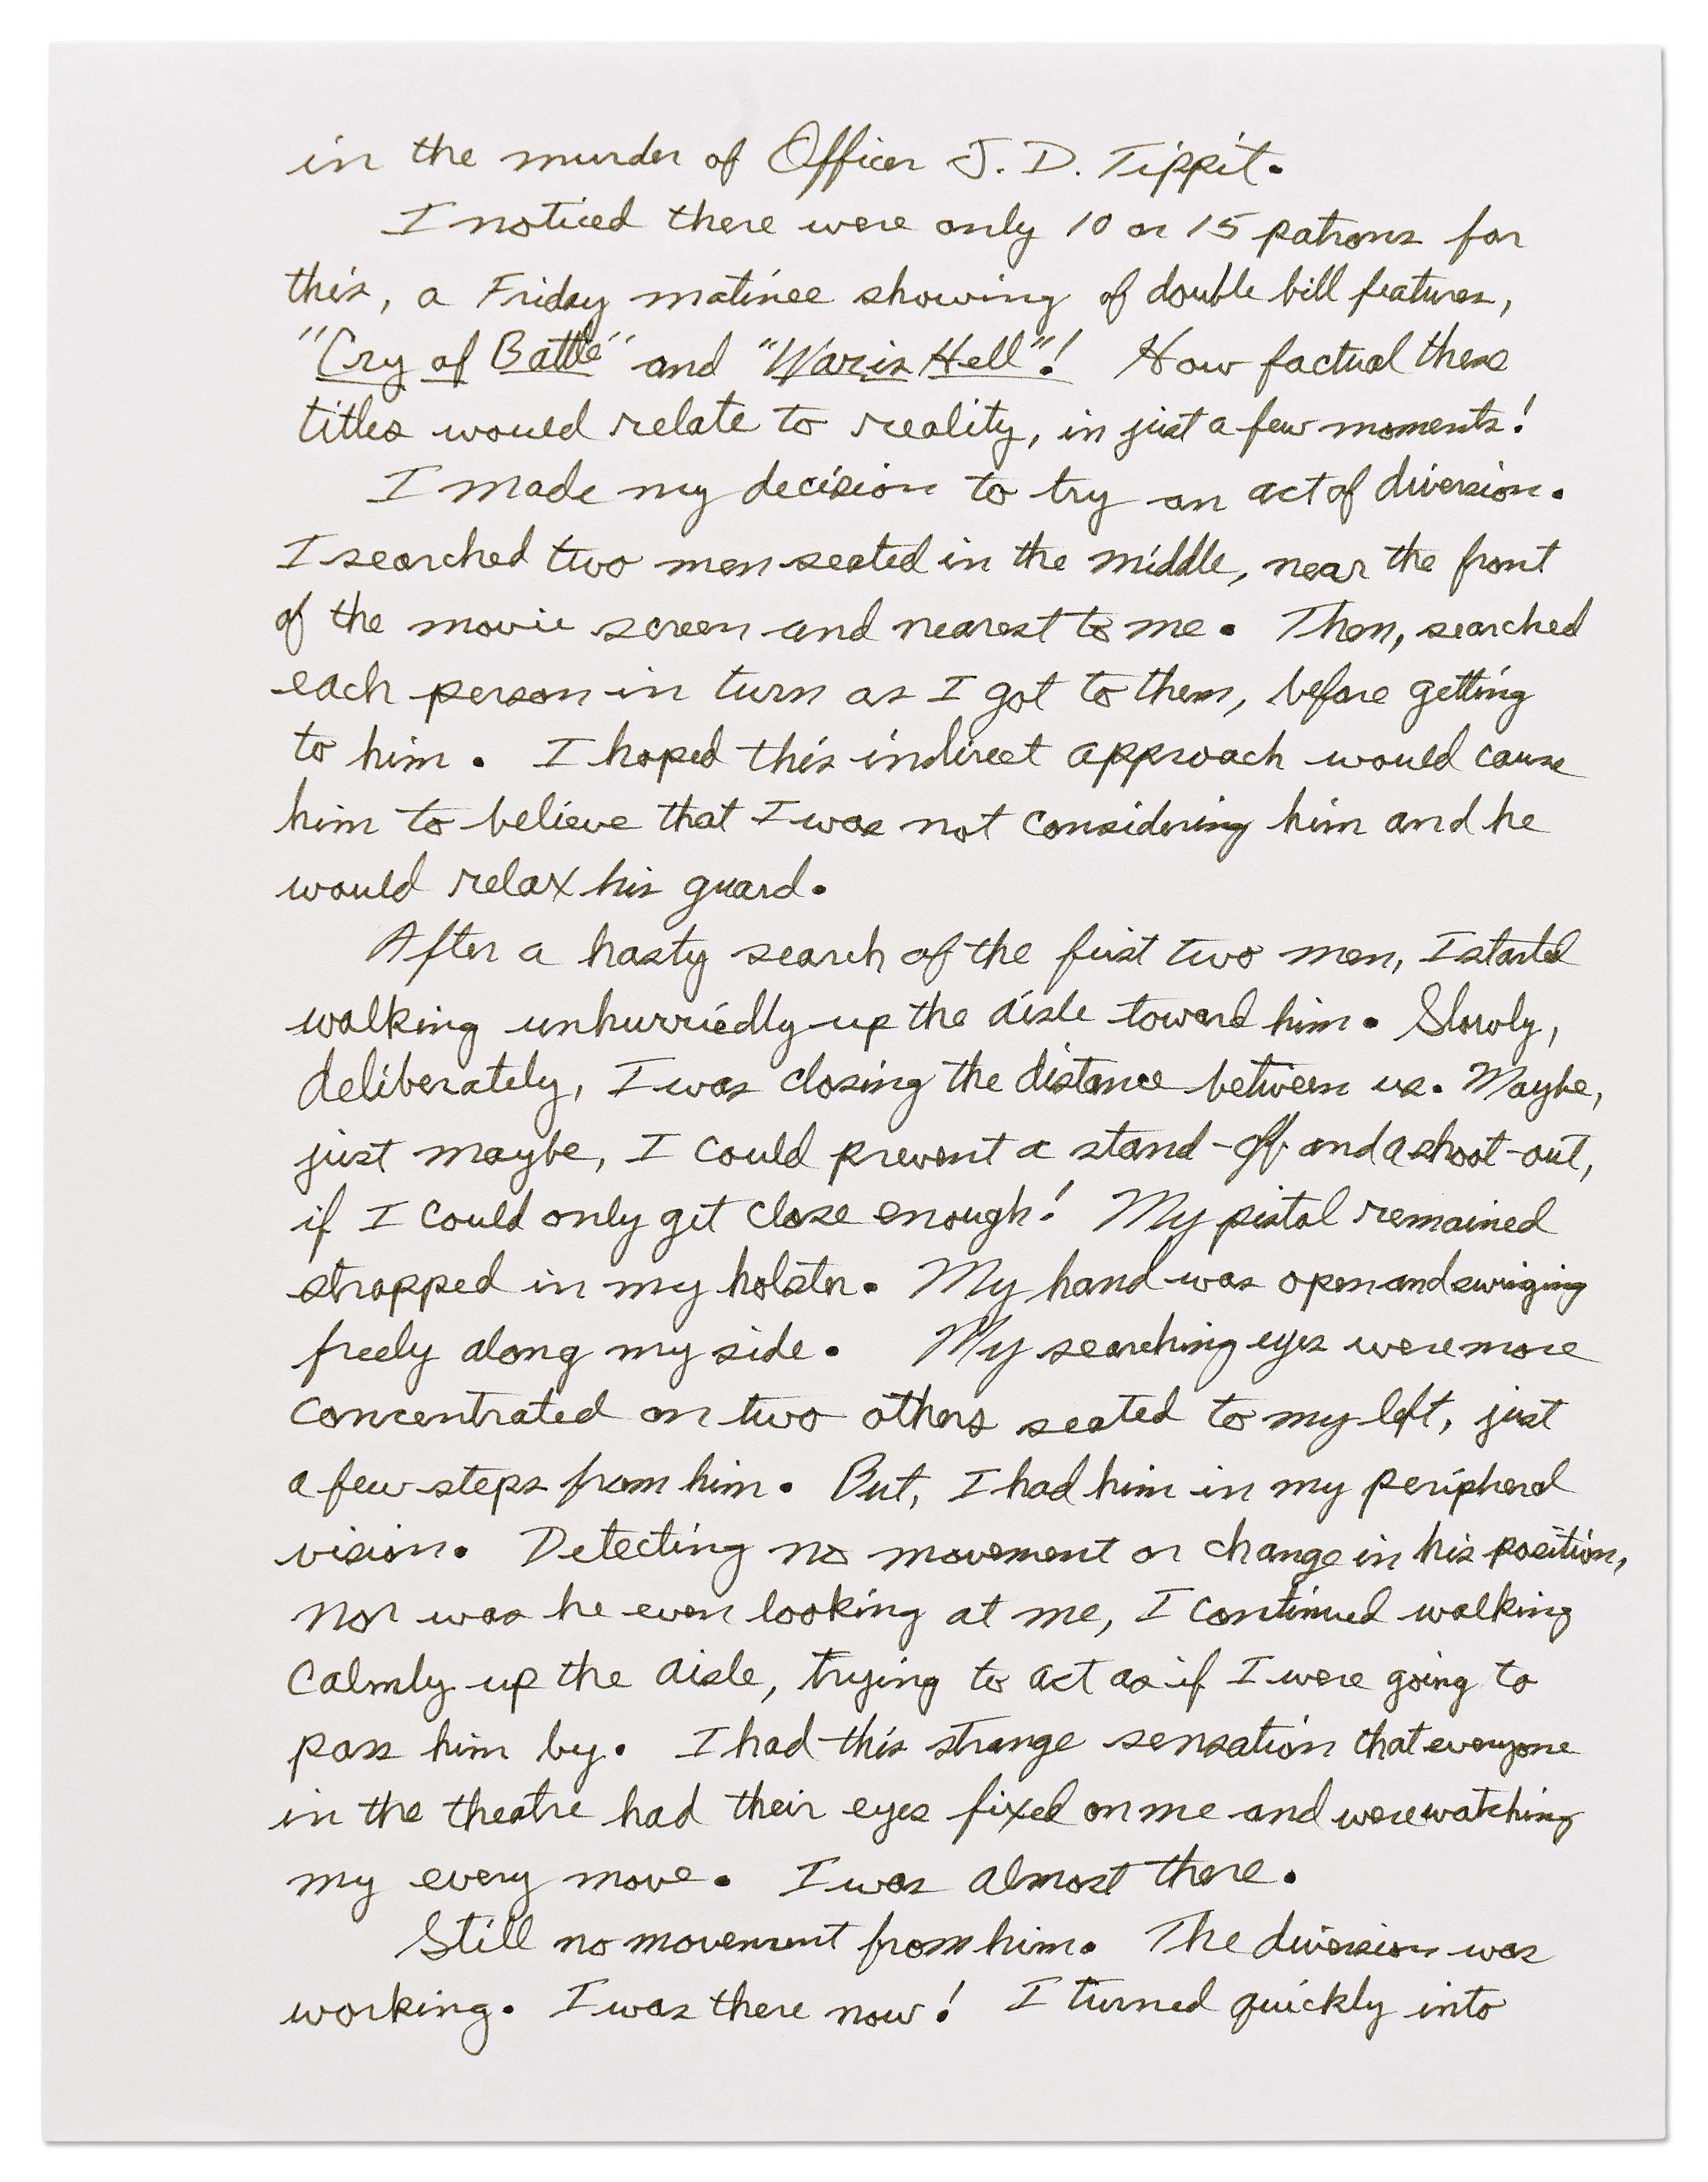 in the murder of Officer J. D. Tippit.
I noticed there were only 10 or 15 patrons for
this, a Friday matinee showing of double bill features,
"Cry of Battle" and "War is Hell"! How factual these
titles would relate to reality, in just a few moments!
I made my decision to try an act of diversion.
I searched two men seated in the middle, near the front
of the movie screen and nearest to me. Then, searched
each person in turn as I got to them, before getting
to him. I hoped this indirect approach would cause
him to believe that I was not considering him and he
would relax his guard.
After a hasty search of the first two men, I started
walking unhurriedly up the aisle toward him. Slowly,
deliberately, I was closing the distance between us. Maybe,
just maybe, I could prevent a stand-off and a shoot-out,
if I could only get close enough! My pistol remained
strapped in my holster. My hand was open and swinging
freely along my side. My searching eyes were more
concentrated on two others seated to my left, just
a few steps from him. But, I had him in my peripheral
vision. Detecting no movement or change in his position,
nor was he even looking at me, I continued walking
calmly up the aisle, trying to act as if I were going to
pass him by. I had this strange sensation that everyone
in the theatre had their eyes fixed on me and were watching
my every move. I was almost there.
Still no movement from him. The diversion was
working. I was there now! I turned quickly into